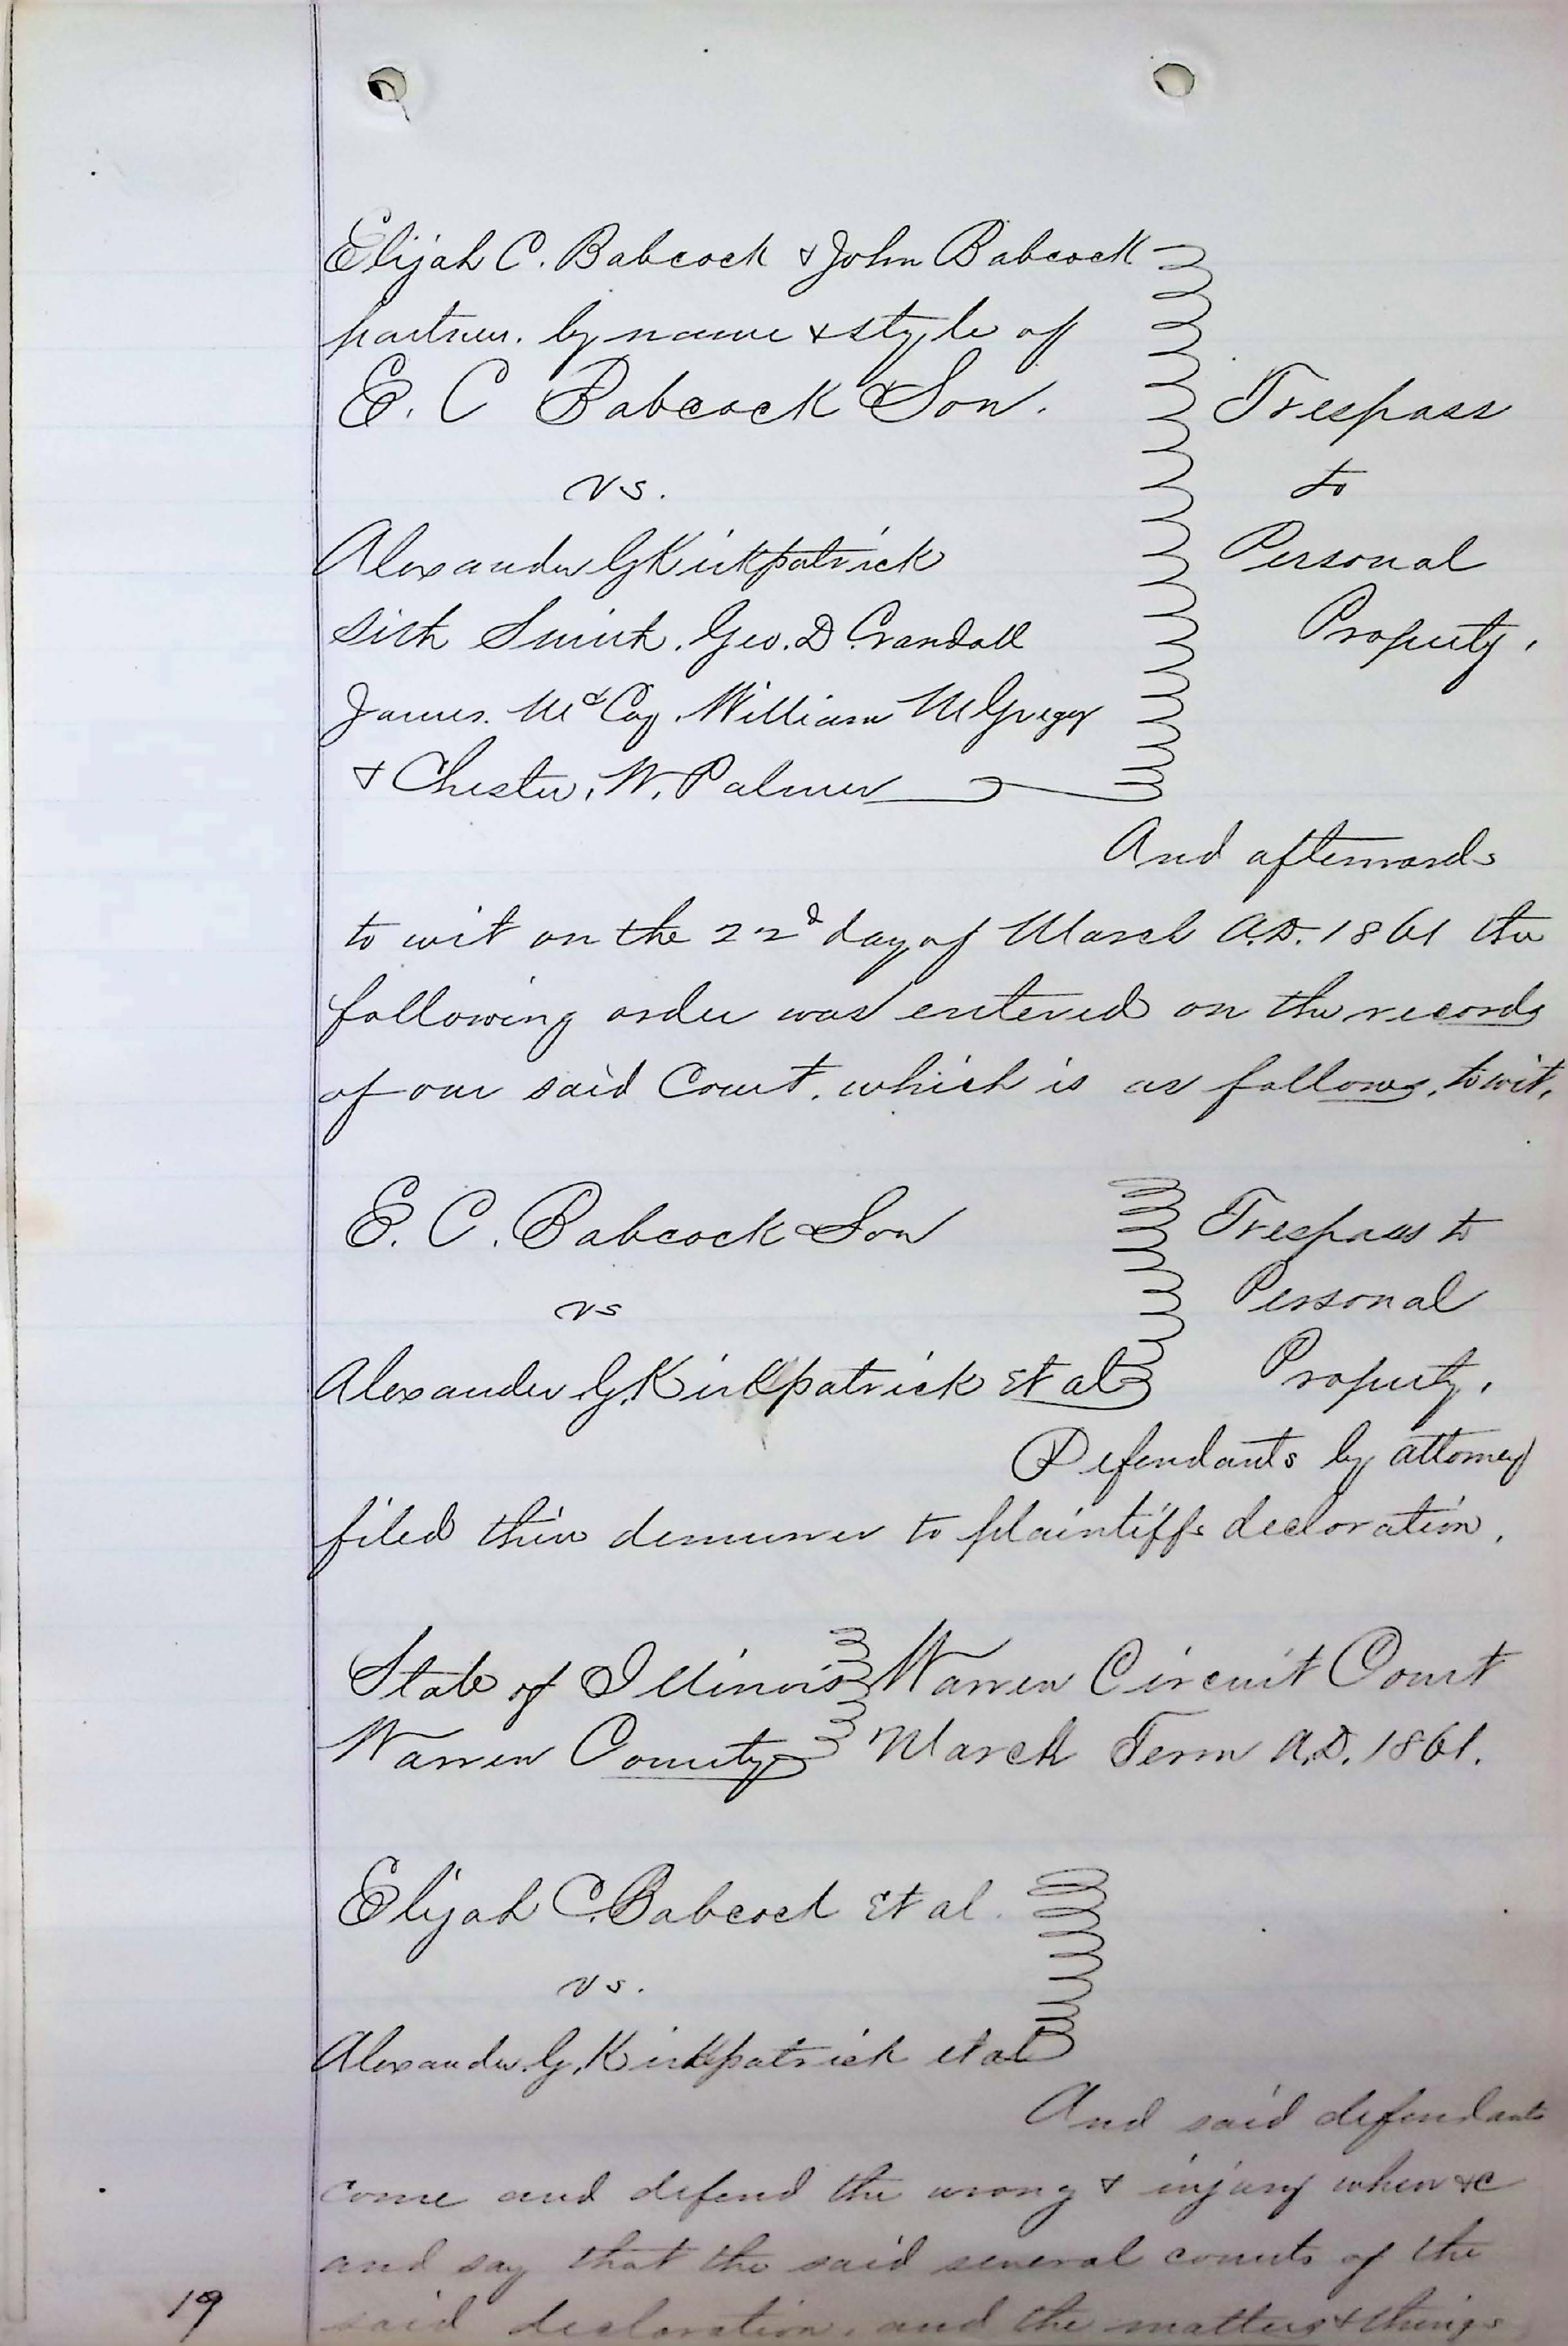 Elijah C. Babcock & John Babcock
partners. by name & style of
E. C Babcock & Son. Trespass
vs. to
Alexander G Kirkpatrick Personal
Sith Smith. Geo. D. Crandall Property.
James. McCoy. William McGregor
& Chester. W. Palmer
And afterwards
to wit on the 22d day of March A.D. 1861 the
following order was entered on the records
of our said Court. which is as follows. to wit.
E. C. Babcock & Son Trespass to
vs Personal
Alexander G. Kirkpatrick et al Property.
Defendants by attorney
filed their demurrer to plaintiffs declaration.
State of Illinois Warren Circuit Court
Warren County March Term A.D. 1861.
Elijah C. Babcock Et al.
vs.
Alexander. G. Kirkpatrick et al
And said defendants
come and defend the wrong & injury when &c
and say that the said several counts of the
said declaration. and the matters & things
19